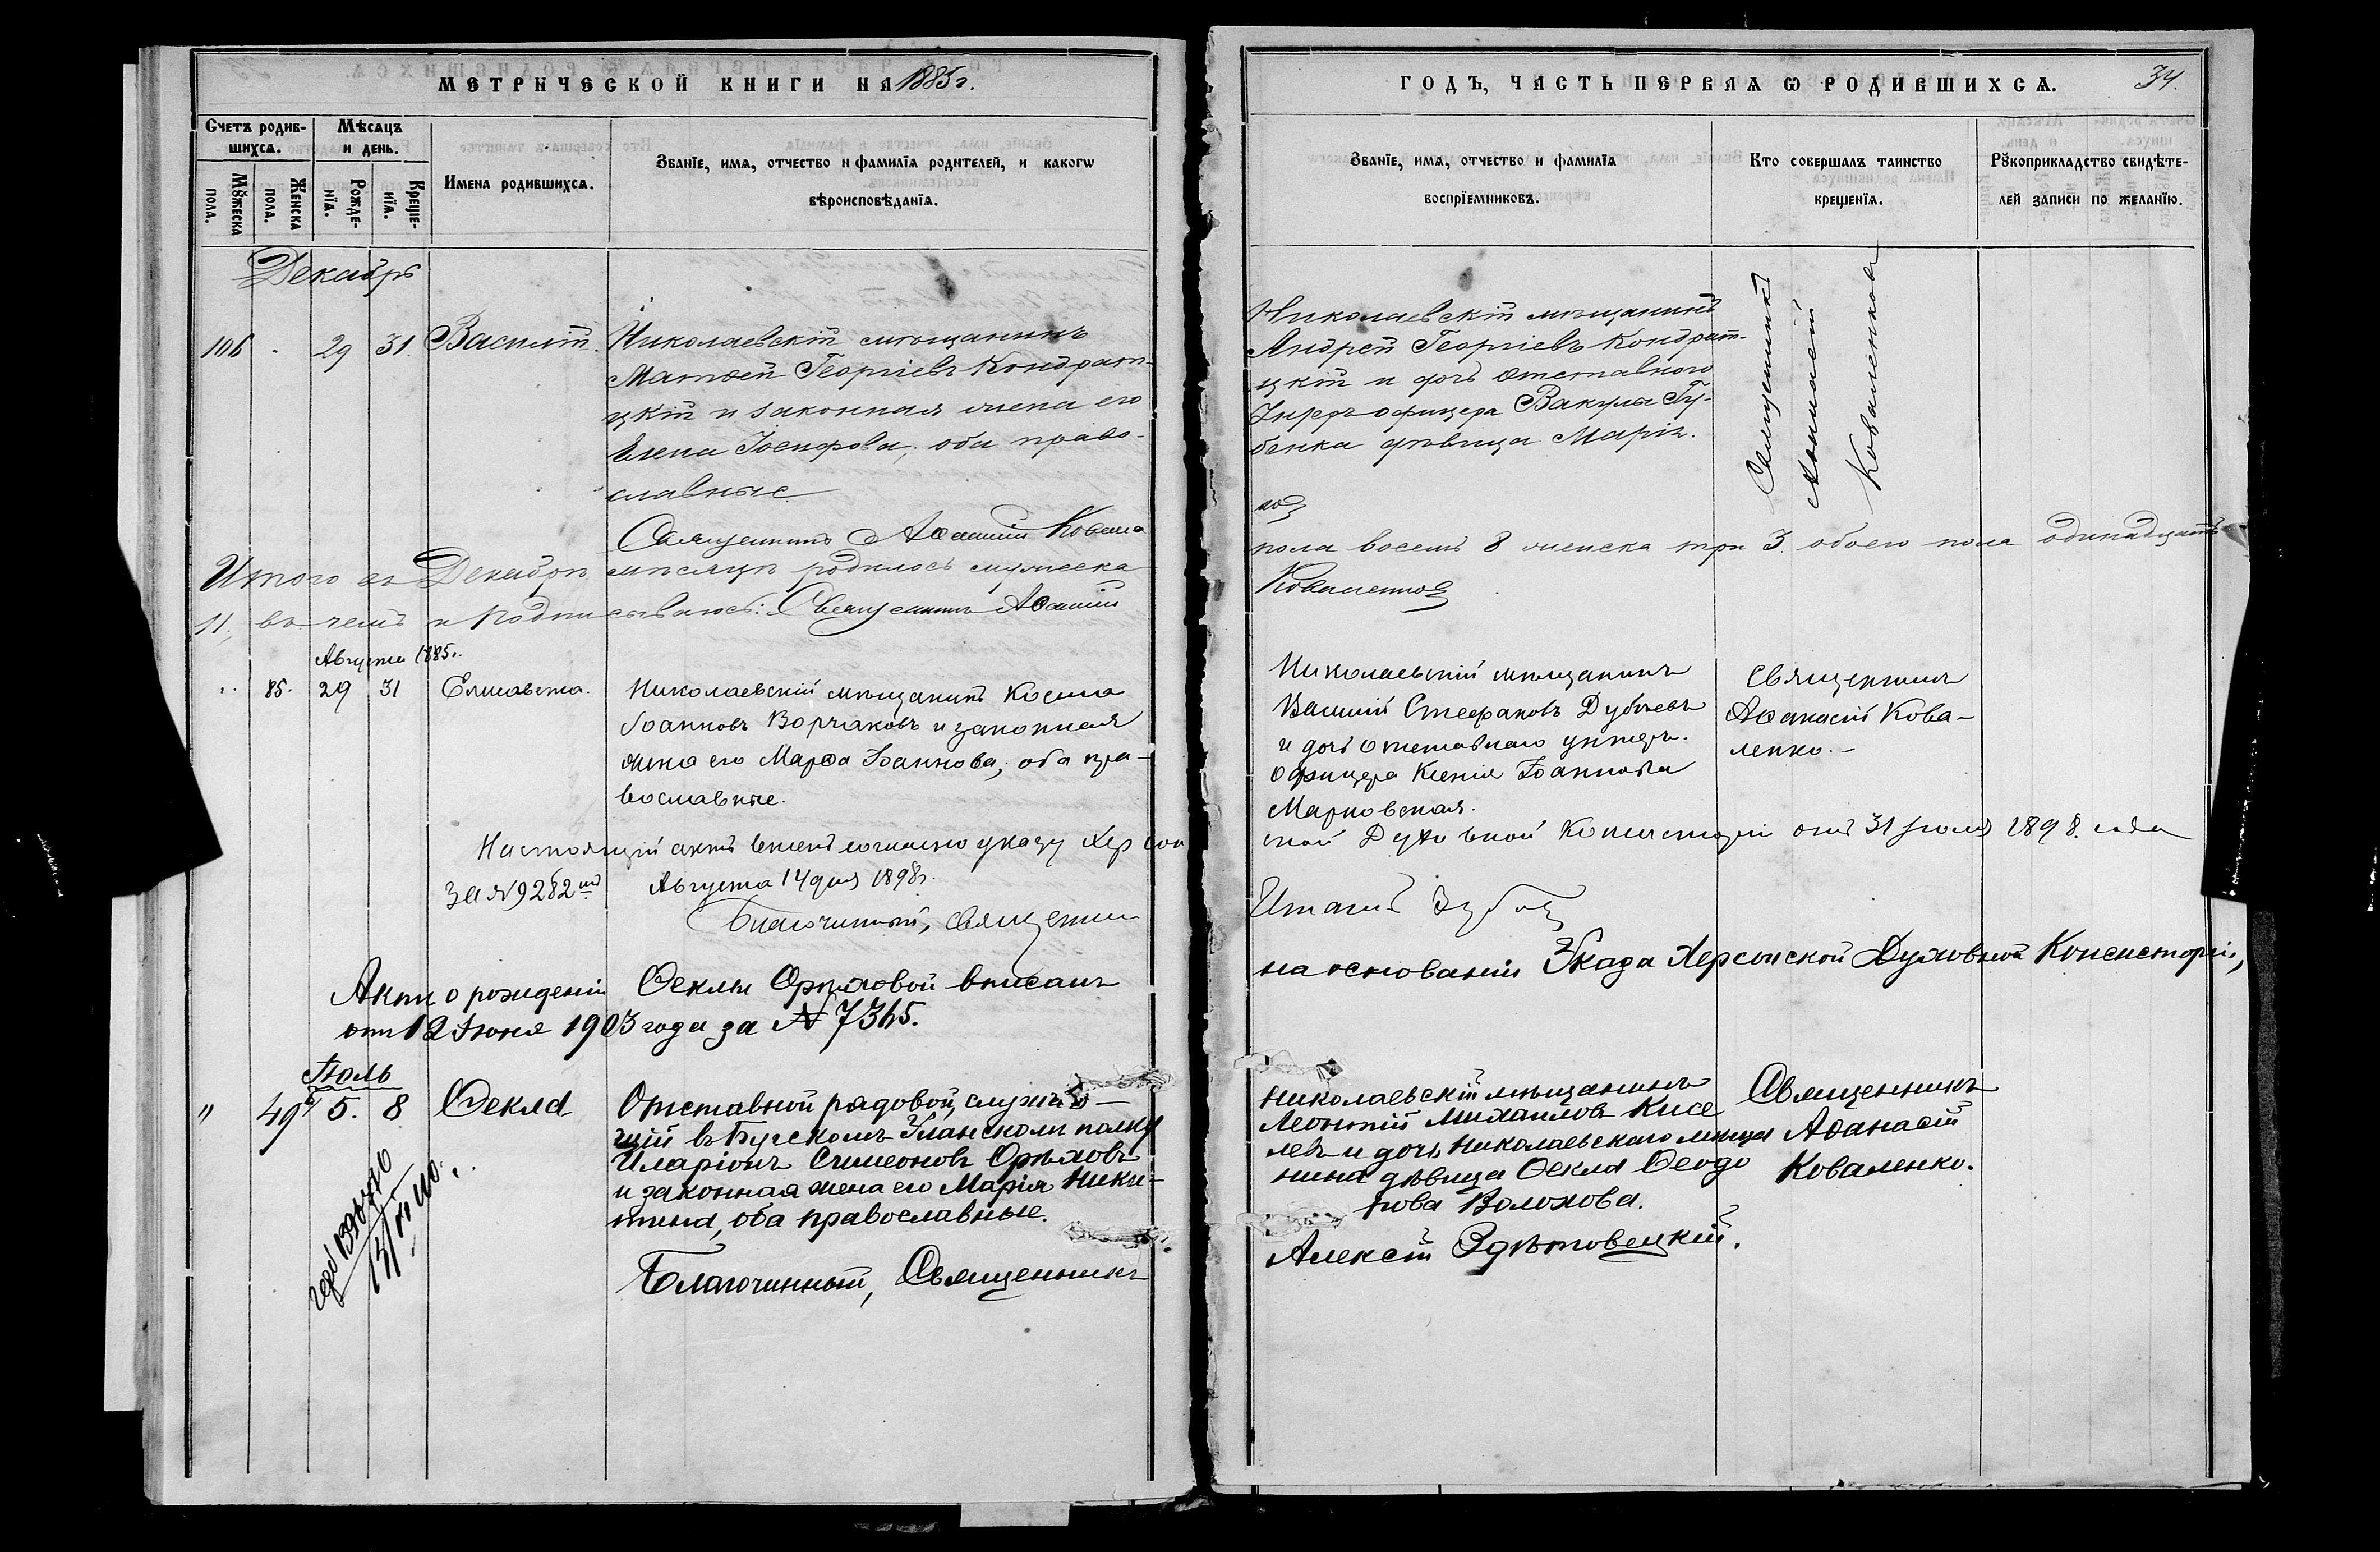 МЕТРИЧЕСКОЙ КНИГИ НА 1885 г.
Счетъ родив-
шихсѧ.
Мѣсѧцъ
и день.
Мꙋжеска
пола.
Женска
пола.
Рожде-
нїѧ.
Креще-
нїѧ.
Имена родившихсѧ.
Званїе, имѧ, отчество и фамилїѧ родителей, и какогѡ
вѣроисповѣданїѧ.
Декабрь
106 . 29 31. Василій.
Николаевскій мѣщанинъ
Матѳей Георгіевъ Кондрат-
цкій и законная жена его
Елена Іосифова, оба право-
славные
Священникъ Аѳанасій Ковале
Итого въ Декабрѣ мѣсяцѣ родилось мужеска
11, въ чемъ и подписываюсь: Священникъ Аѳанасій
Августа 1885.
.. 85. 29 31 Елисавета.
Николаевскій мѣщанинъ Косма
Іоанновъ Ворчаковъ и законная
жена его Марѳа Іоаннова, оба пра-
вославные.
Настоящій актъ внесенъ согласно указу Херсон
за №9282мъ Августа 14 дня 1898г.
Благочинный, Священник
Актъ о рожденіи Ѳеклы Орѣховой вписанъ
отъ 12 Іюня 1903 года за № 7365.
Іюль
" 49 5. 8 Ѳекла
Отставной рядовой, служив-
щій въ Бугскомъ Уланскомъ полку
Иларіонъ Симеоновъ Орѣховъ
и законная жена его Марія Ники-
тина, оба православные.
Благочинный, Священникъ
ГОДЪ, ЧАСТЬ ПЕРВАѦ Ѡ РОДИВШИХСѦ.
34.
Званїе, имѧ, отчество и фамилїѧ
воспрїемниковъ.
Кто совершалъ таинство
крещенїѧ.
Рꙋкоприкладство свидѣте-
лей записи по желанїю.
Николаевскій мѣщанинъ
Андрей Георгіевъ Кондрат-
цкій и дочь отставного
Унтеръ офицера Вакулы Гу-
бенка дѣвица Марія.
Священникъ
Аѳанасій
Коваленков
пола восемь 8 женска три 3. обоего пола одинадцать
Коваленков
Николаевскій мѣщанинъ
Василій Стефановъ Дубовевъ
и дочь отставнаго унтеръ-
офицера Ксенія Іоаннова
Марковская.
Священникъ
Аѳанасій Кова-
ленко.-
ской Духовной Консисторіи отъ 31 Іюля 1898. года
на основаніи Указа Херсонской Духовной Консисторіи,
Николаевскій мѣщанинъ
Леонтій Михаиловъ Кисе
левъ и дочь Николаевскаго мѣща
нина дѣвица Ѳекла Ѳеодо
рова Волохова.
Священникъ
Аѳанасій
Коваленко.
Алексій